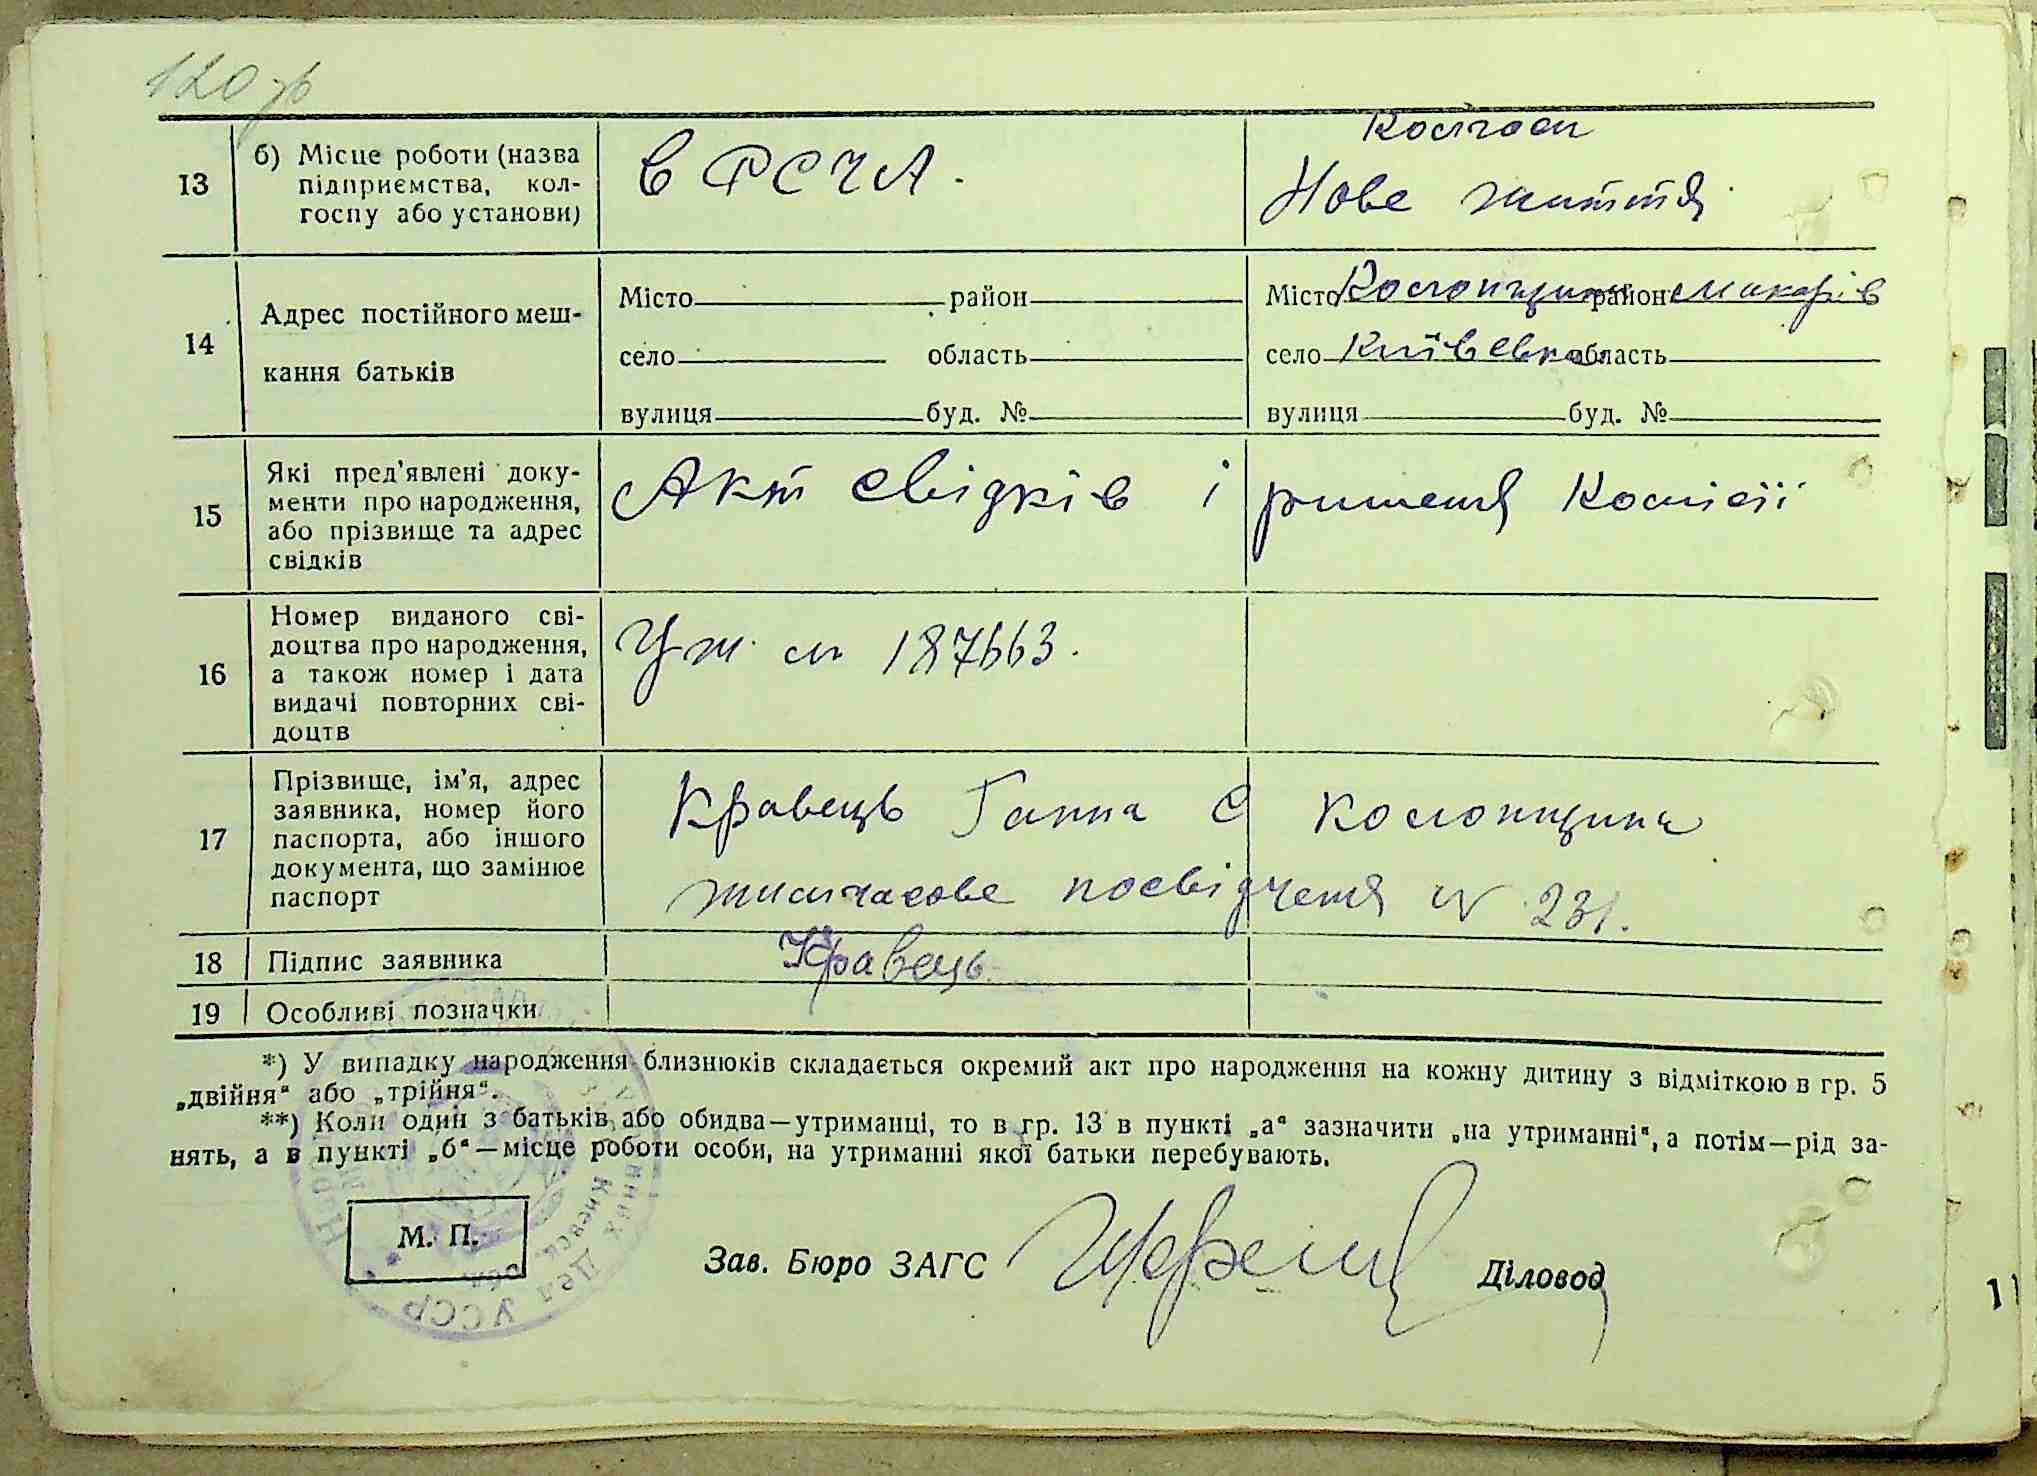 120 зв
13
б) Місце роботи (назва
підприємства, кол-
госпу або установи)
в РСЧА.
Колгосп
Нове життя
14
Адрес постійного меш-
кання батьків
Місто район
село область
вулиця буд. №
Місто Колонщина район Макарів
село Київська область
вулиця буд. №
15
Які пред'явлені доку-
менти про народження,
або прізвище та адрес
свідків
Акт свідків і ришеня Комісії
16
Номер виданого сві-
доцтва про народження,
а також номер і дата
видачі повторних сві-
доцтв
187663.
17
Прізвище, ім'я, адрес
заявника, номер його
паспорта, або іншого
документа, що замінює
паспорт
Кравець Ганна С Колонщина
тимчасове посвідченя № 231.
18
Підпис заявника
Кравець
19
Особливі позначки
*) У випадку народження близнюків складається окремий акт про народження на кожну дитину з відміткою в гр. 5
„двійня“ або „трійня“.
**) Коли один з батьків або обидва—утриманці, то в гр. 13 в пункті „а“ зазначити „на утриманні“, а потім—рід за-
нять, а в пункті „б“—місце роботи особи, на утриманні якої батьки перебувають.
М. П.
Зав. Бюро ЗАГС
Діловод
Дел УССР